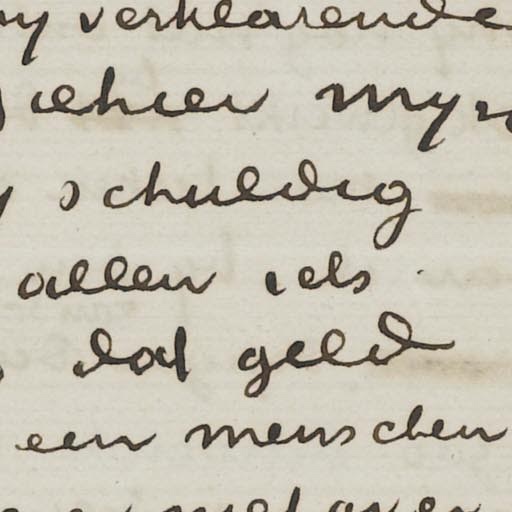 verklarende
ziehier myn
schuldig
allen iets
dat geld
een menschen